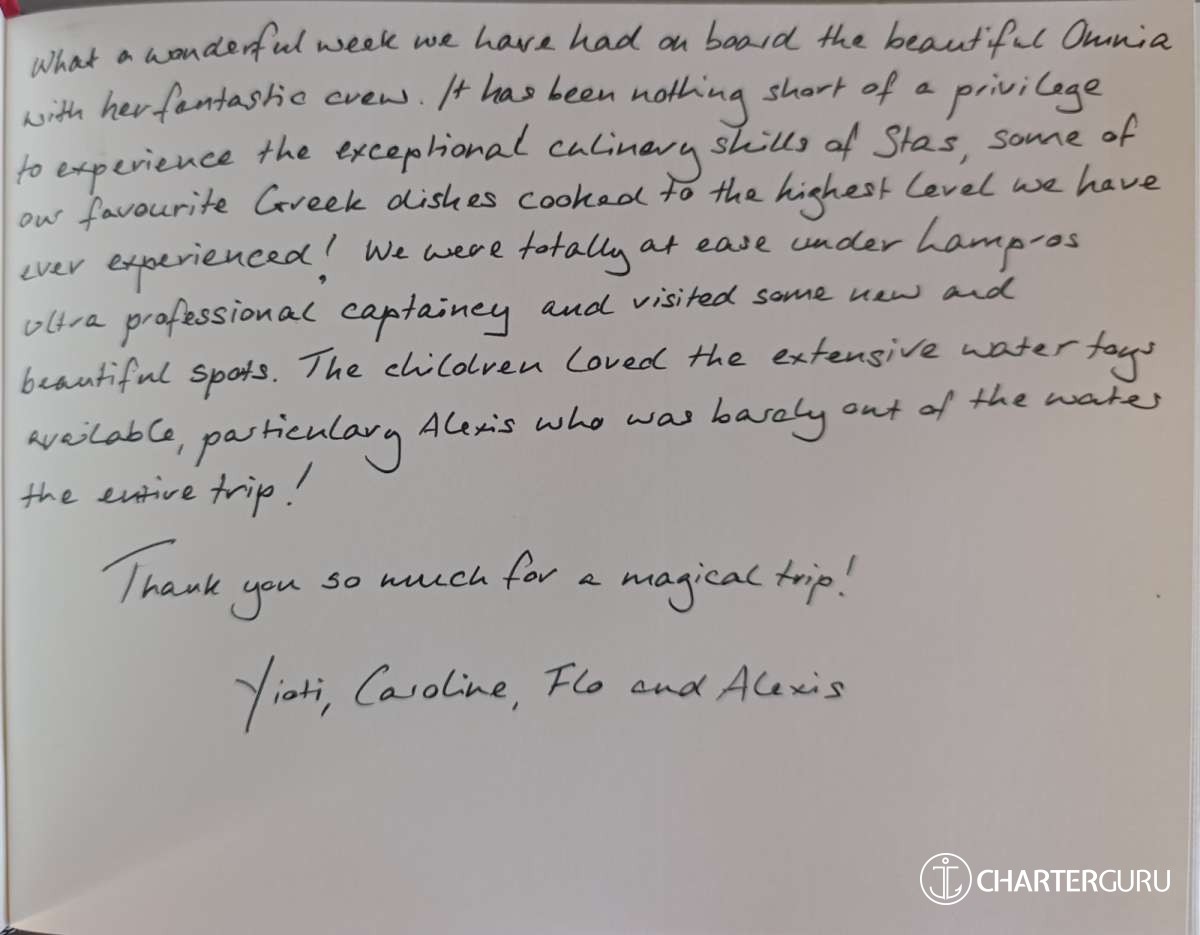 What a wonderful week we have had on board the beautiful Omnia
with her fantastic crew. It has been nothing short of a privilege
to experience the exceptional culinary skills of Stas, some of
our favourite Greek dishes cooked to the highest level we have
ever experienced! We were totally at ease under Lampros
ultra professional captainey and visited some new and
beautiful spots. The children loved the extensive water toys
available, particulary Alexis who was barely out of the water
the entire trip!
Thank you so much for a magical trip!
Yioti, Caroline, Flo and Alexis
CHARTERGURU